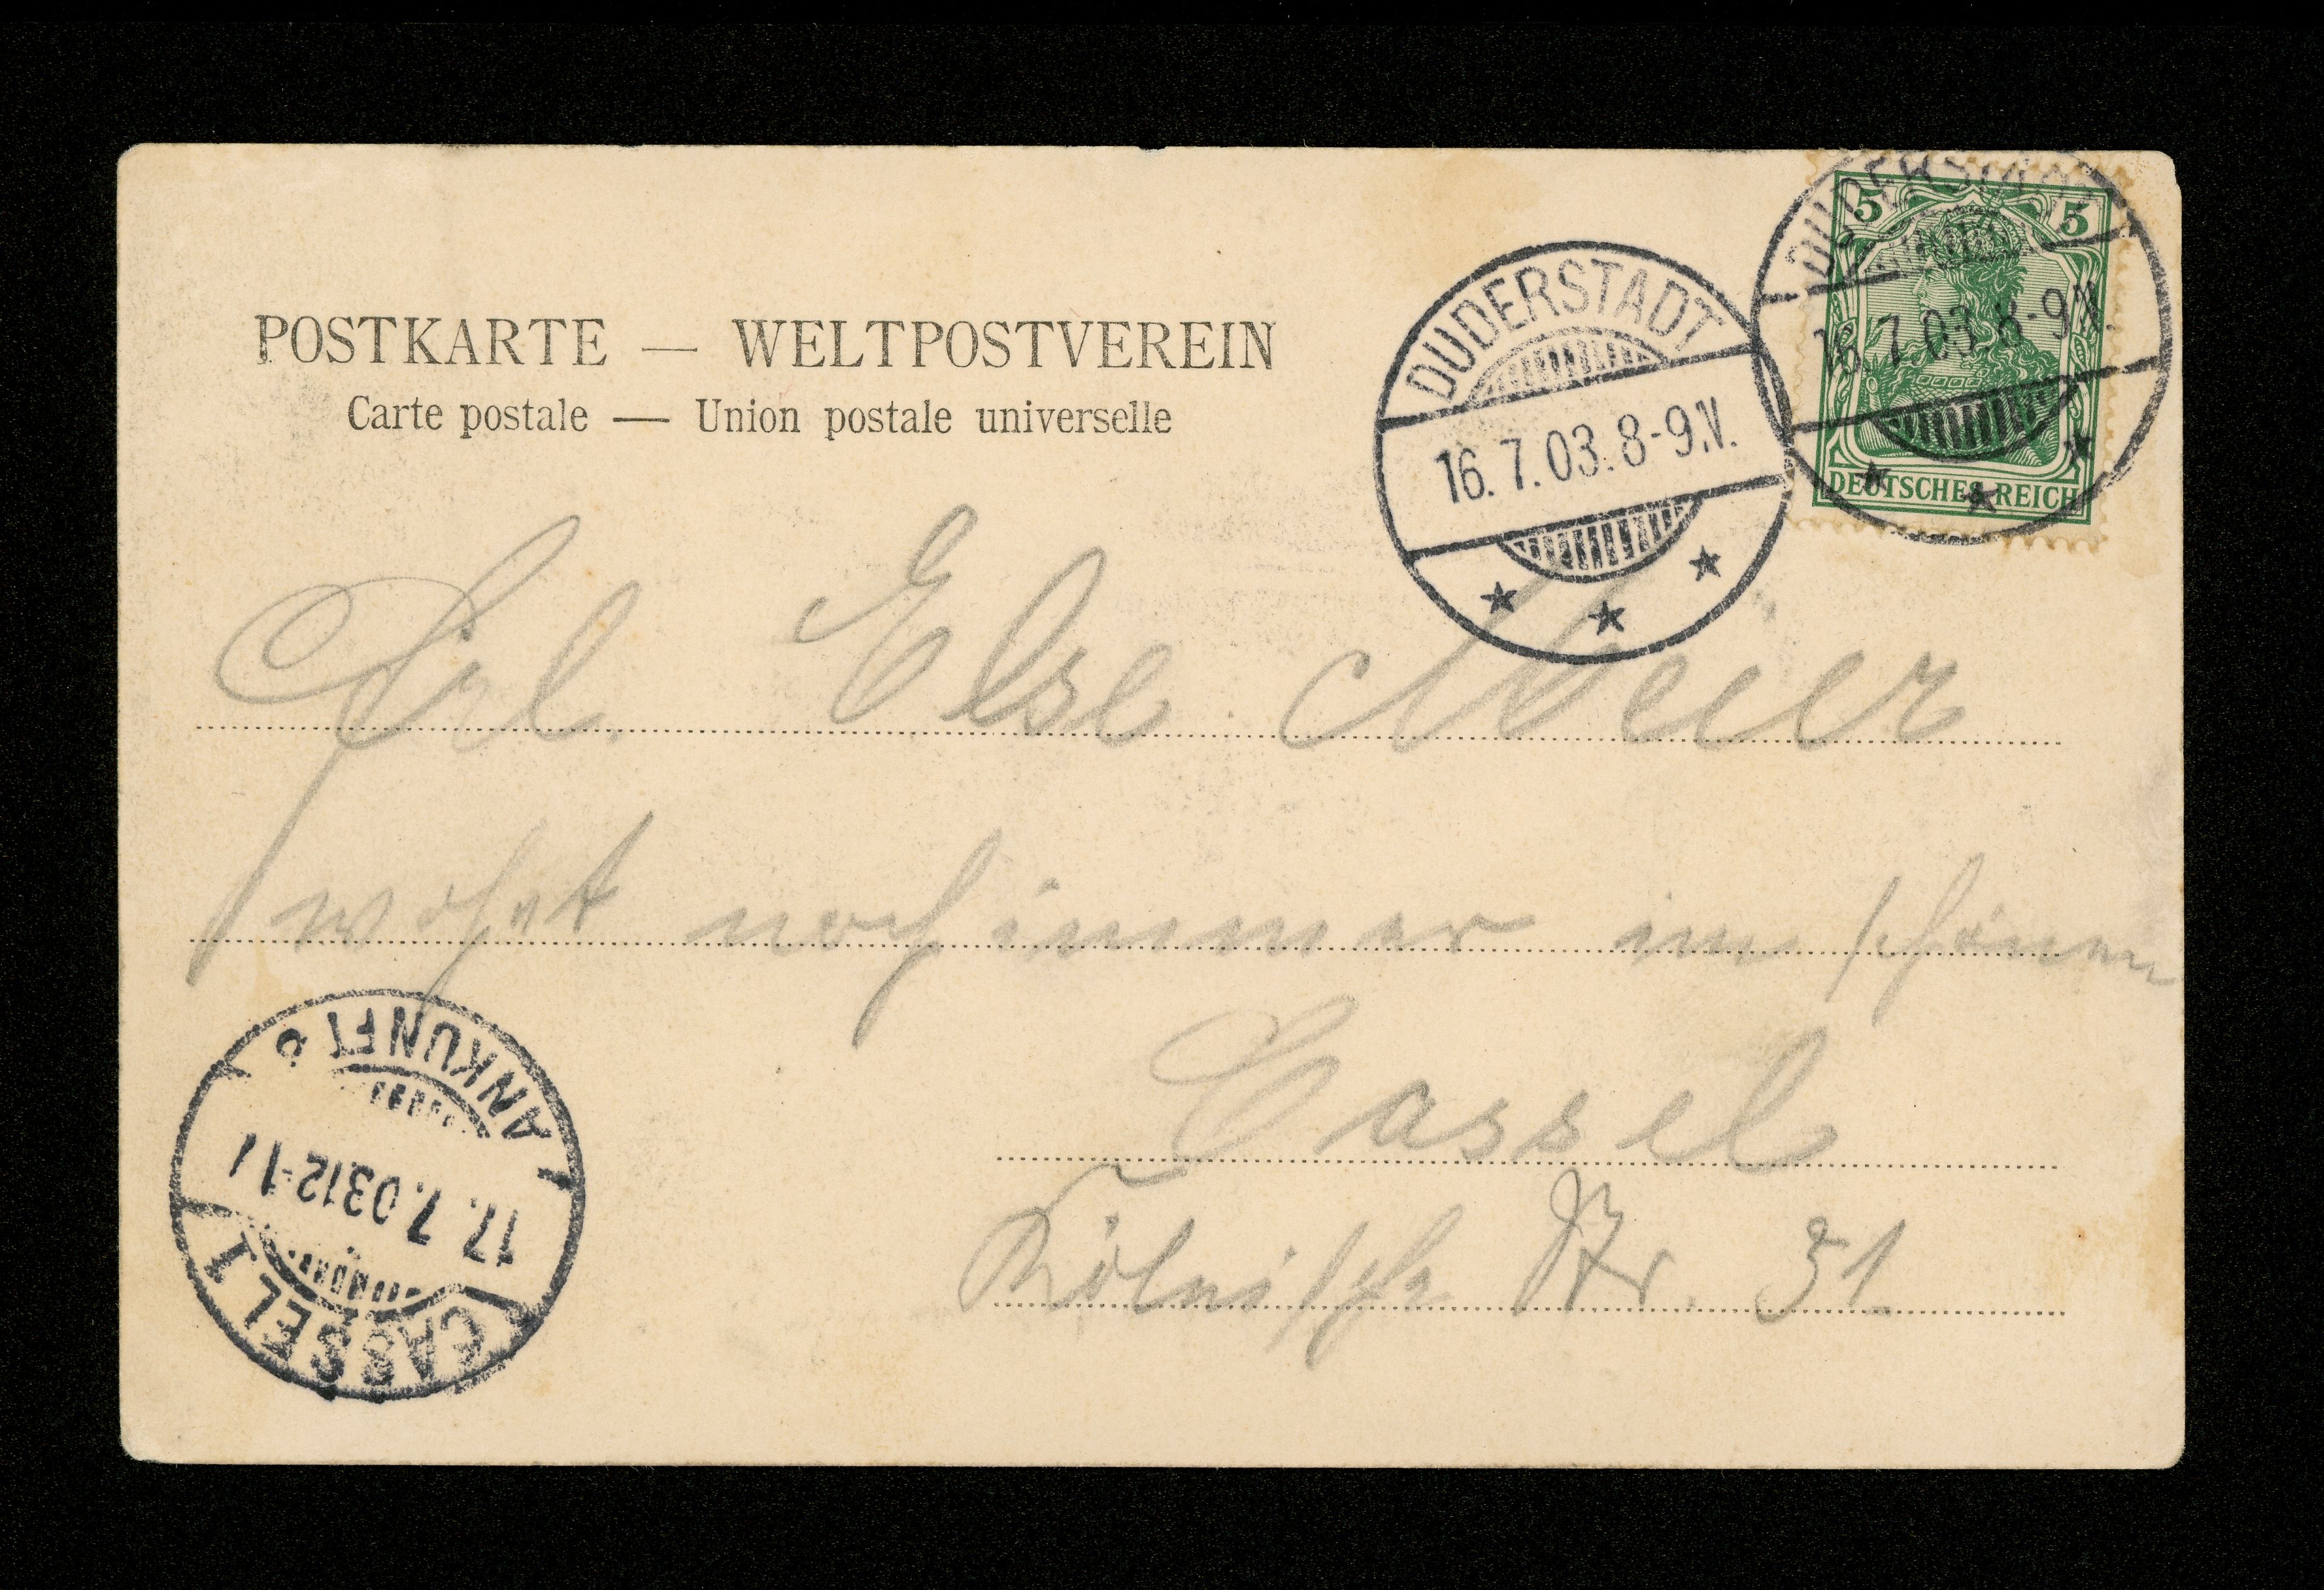 POSTKARTE — WELTPOSTVEREIN
Carte postale — Union postale universelle
DUDERSTADT
16. 7. 03. 8-9.V.
DUDERSTADT
16. 7. 03. 8-9.V.
5 5
DEUTSCHES REICH
Frl. Else Meier
wohnt noch immer im schönen
Cassel
Kölnische Str. 31
ANKUNFT
17. 7. 03 12-1
CASSEL 1